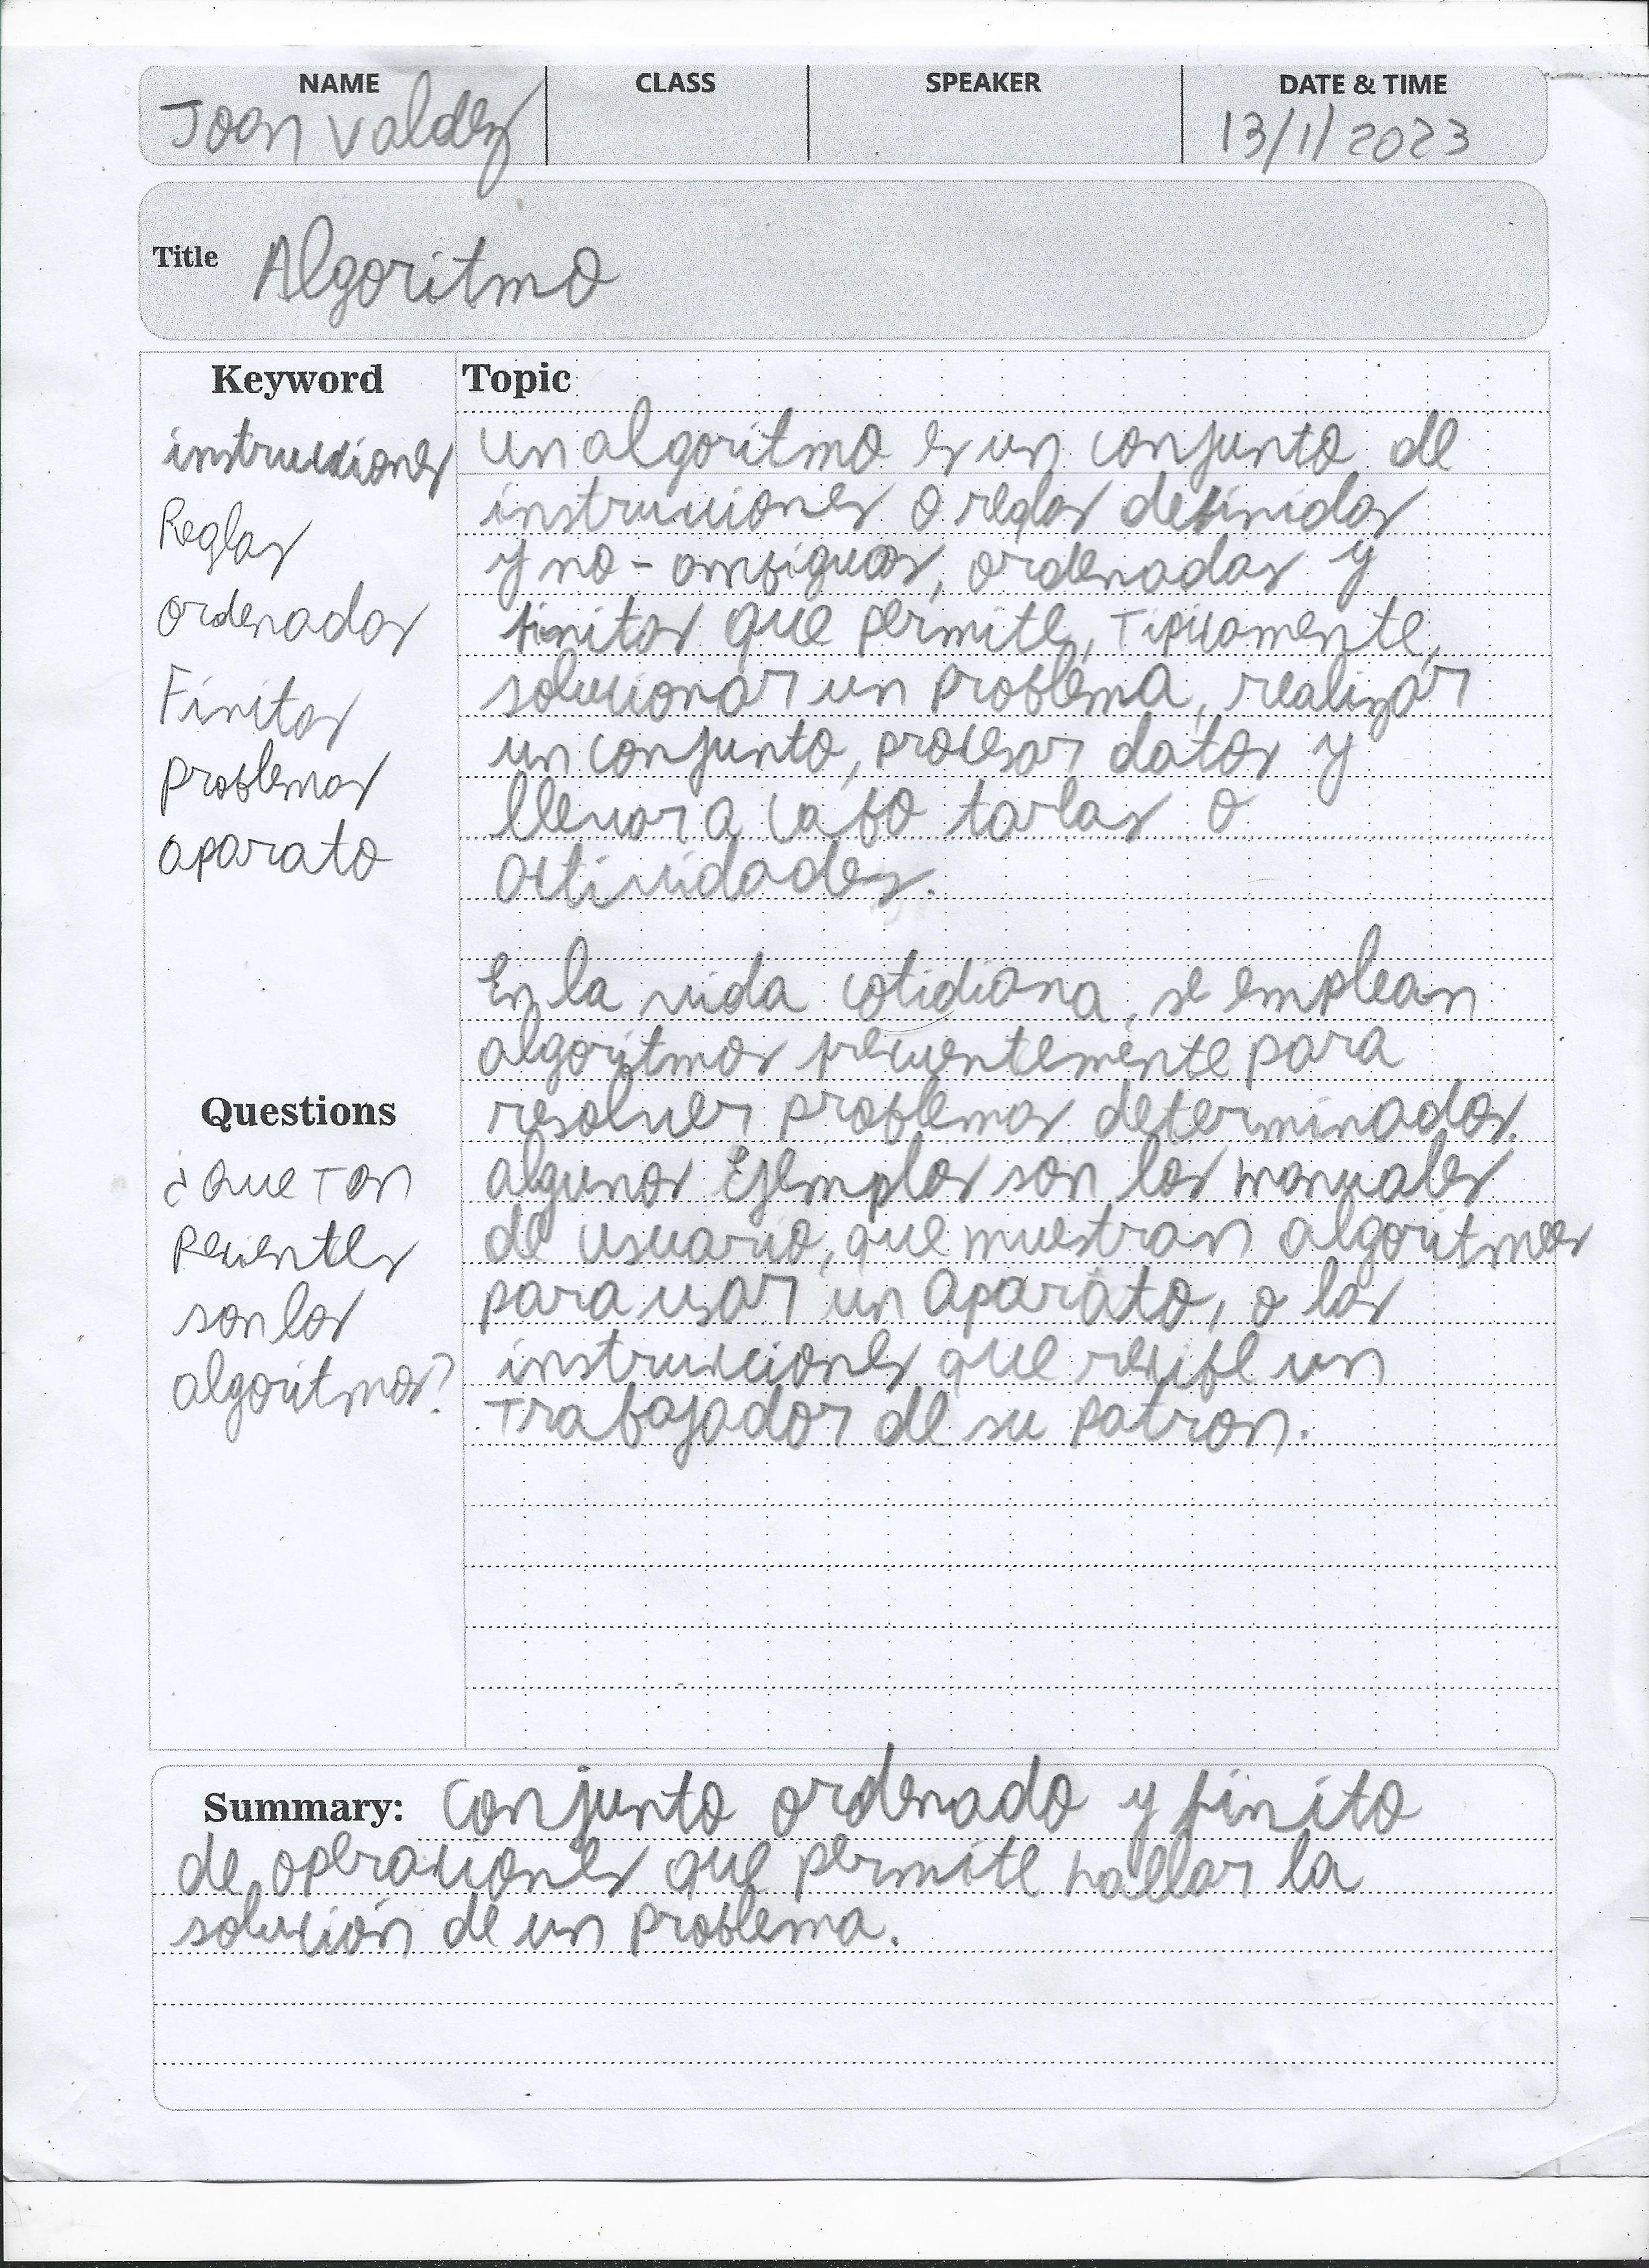 NAME CLASS SPEAKER DATE & TIME
Joan Valdez 13/1/2023
Title Algoritmo
Keyword
instrucciones
Reglas
ordenados
Finitos
problemas
aparato
Questions
¿Que Tan
recientes
son los
algoritmos?
Topic
un algoritmo es un conjunto de
instrucciones o reglas definidas
y no-ambiguas, ordenadas y
finitas que permite, Tipicamente,
solucionar un problema, realizar
un conjunto, procesar datos y
llevar a cabo tareas o
actividades.
En la vida cotidiana, se emplean
algoritmos frecuentemente para
resolver problemas determinados.
algunos Ejemplos son los manuales
de usuario, que muestran algoritmos
para usar un aparato, o las
instrucciones que recibe un
Trabajador de su patron.
Summary: conjunto ordenado y finito
de operaciones que permite hallar la
solución de un problema.